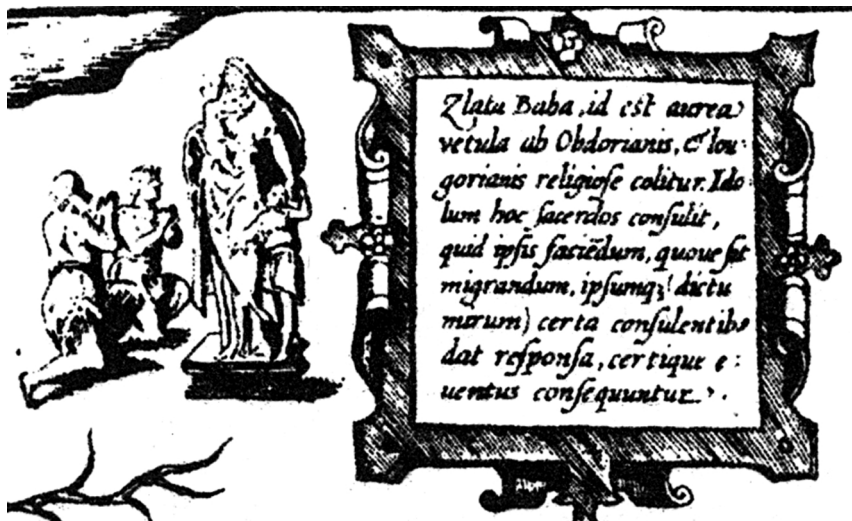 Zlata Baba, id est aurea
vetula ab Obdorianis, & Iou-
gorianis religiose colitur. Ido
lum hoc sacerdos consulit,
quid ipsis faciēdum, quove sit
migrandum, ipsumq; (dictu
mirum) certa consulentibꝰ
dat responsa, certique e-
uentus consequuntur.